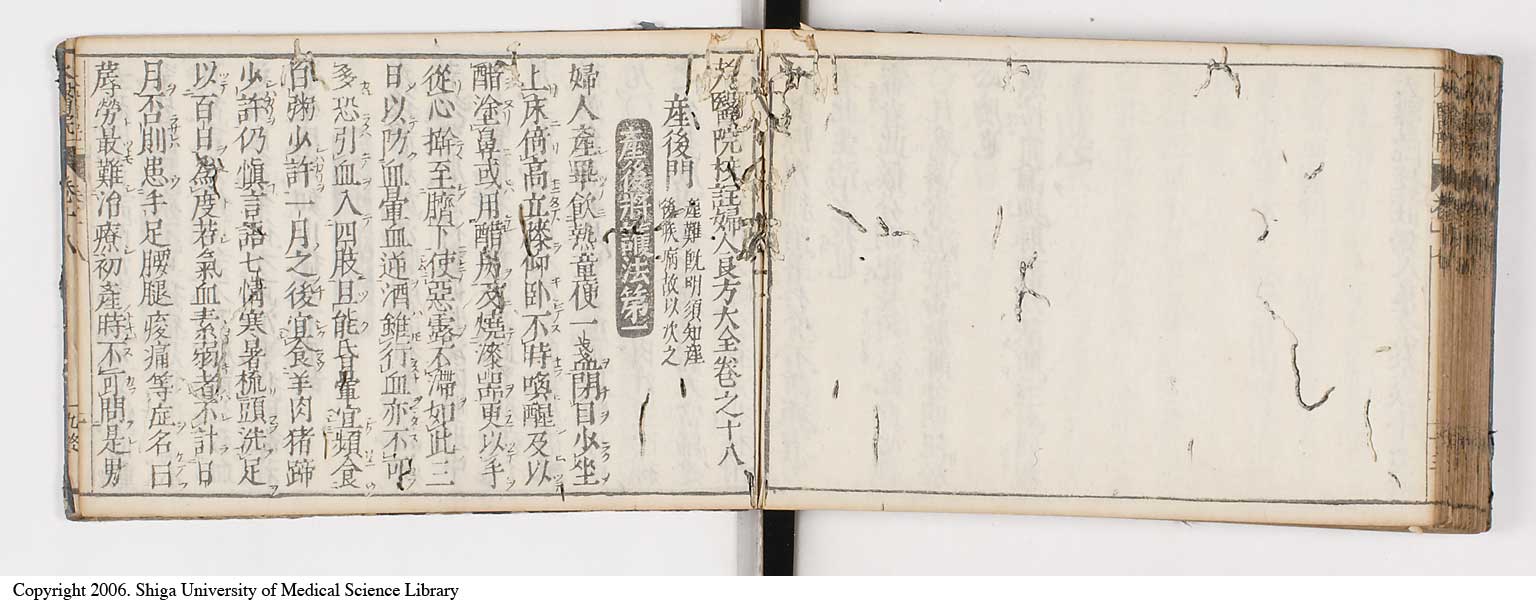 太醫院校註婦人良方大全卷之十八
產後門
產難既明須知產
後疾病故以次之
產後將護法第一
婦人產畢飲熱童便一盞閉目少坐
上床倚高立膝仰臥不時喚醒及以
醋塗鼻或用醋炭及燒漆器更以手
從心擀至臍下使惡露不滯如此三
日以防血暈血逆酒雖行血亦不可
多恐引血入四肢且能昏暈宜頻食
白粥少許一月之後宜食羊肉猪蹄
少許仍慎言語七情寒暑梳頭洗足
以百日為度若氣血素弱者不計日
月否則患手足腰腿痠痛等症名曰
蓐勞最難治療初產時不可問是男
Copyright 2006. Shiga University of Medical Science Library